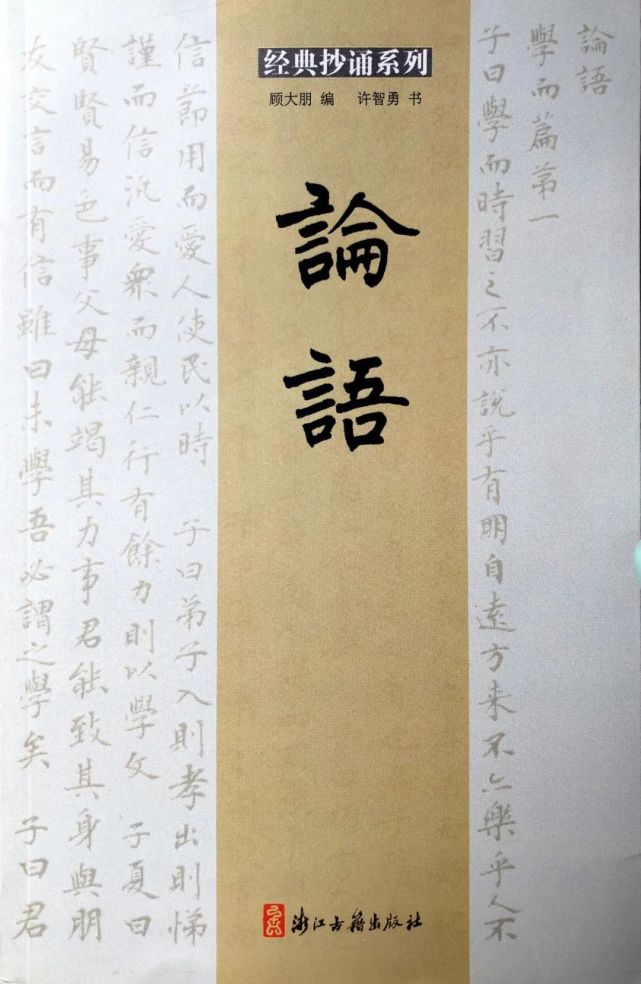 经典抄诵系列
顾大朋 编 许智勇 书
論語
浙江古籍出版社
論語
學而篇第一
子曰學而時習之不亦說乎有朋自遠方来不亦樂乎人不
信節用而愛人使民以時 子曰弟子入則孝出則悌
謹而信汎愛衆而親仁行有餘力則以學文 子夏曰
賢賢易色事父母能竭其力事君能致其身與朋
友交言而有信雖曰未學吾必謂之學矣 子曰君